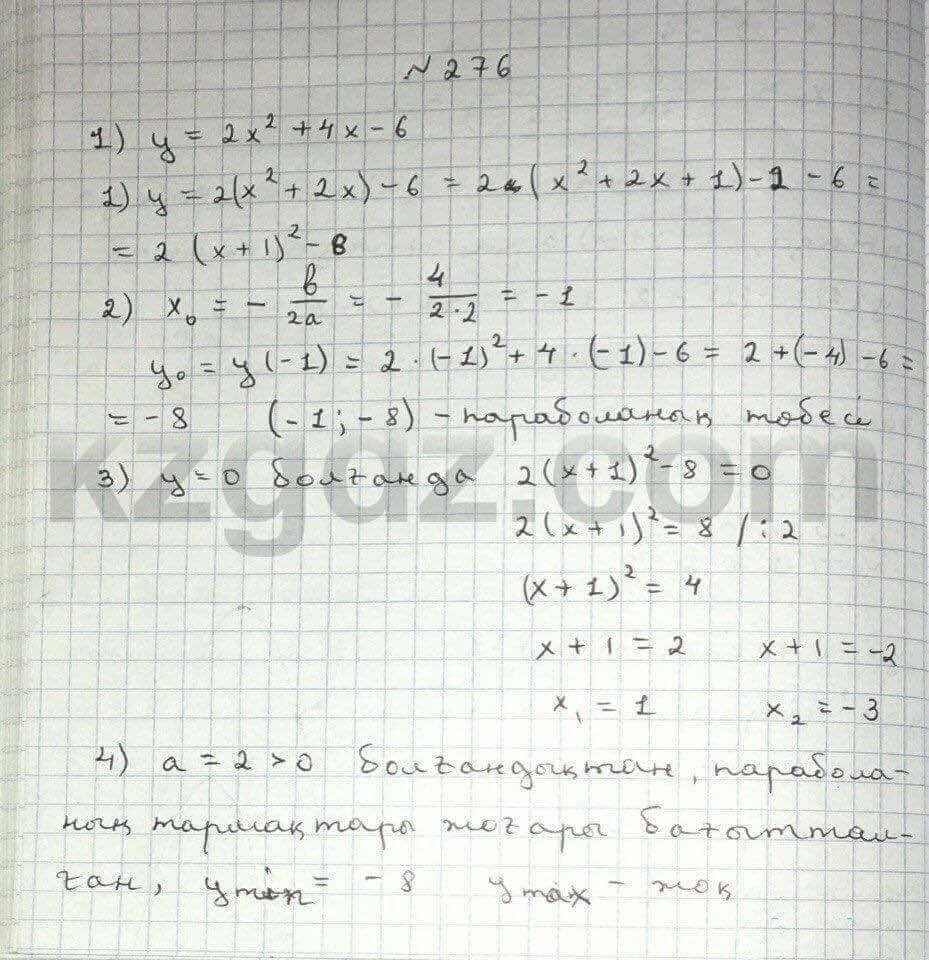 № 276
1) y = 2x² + 4x - 6
1) y = 2(x² + 2x) - 6 = 2 (x² + 2x + 1) - 2 - 6 =
= 2 (x + 1)² - 8
2) x₀ = - b/2a = - 4/2·2 = -1
y₀ = y(-1) = 2·(-1)² + 4·(-1) - 6 = 2 + (-4) - 6 =
= -8 (-1; -8) - параболаның төбесі
3) y = 0 болғанда 2(x + 1)² - 8 = 0
2(x + 1)² = 8 /:2
(x + 1)² = 4
x + 1 = 2 x + 1 = -2
x₁ = 1 x₂ = -3
4) a = 2 > 0 болғандықтан, парабола-
ның тармақтары жоғары бағыттал-
ған, y min = -8 y max - жоқ
kzgdz.com